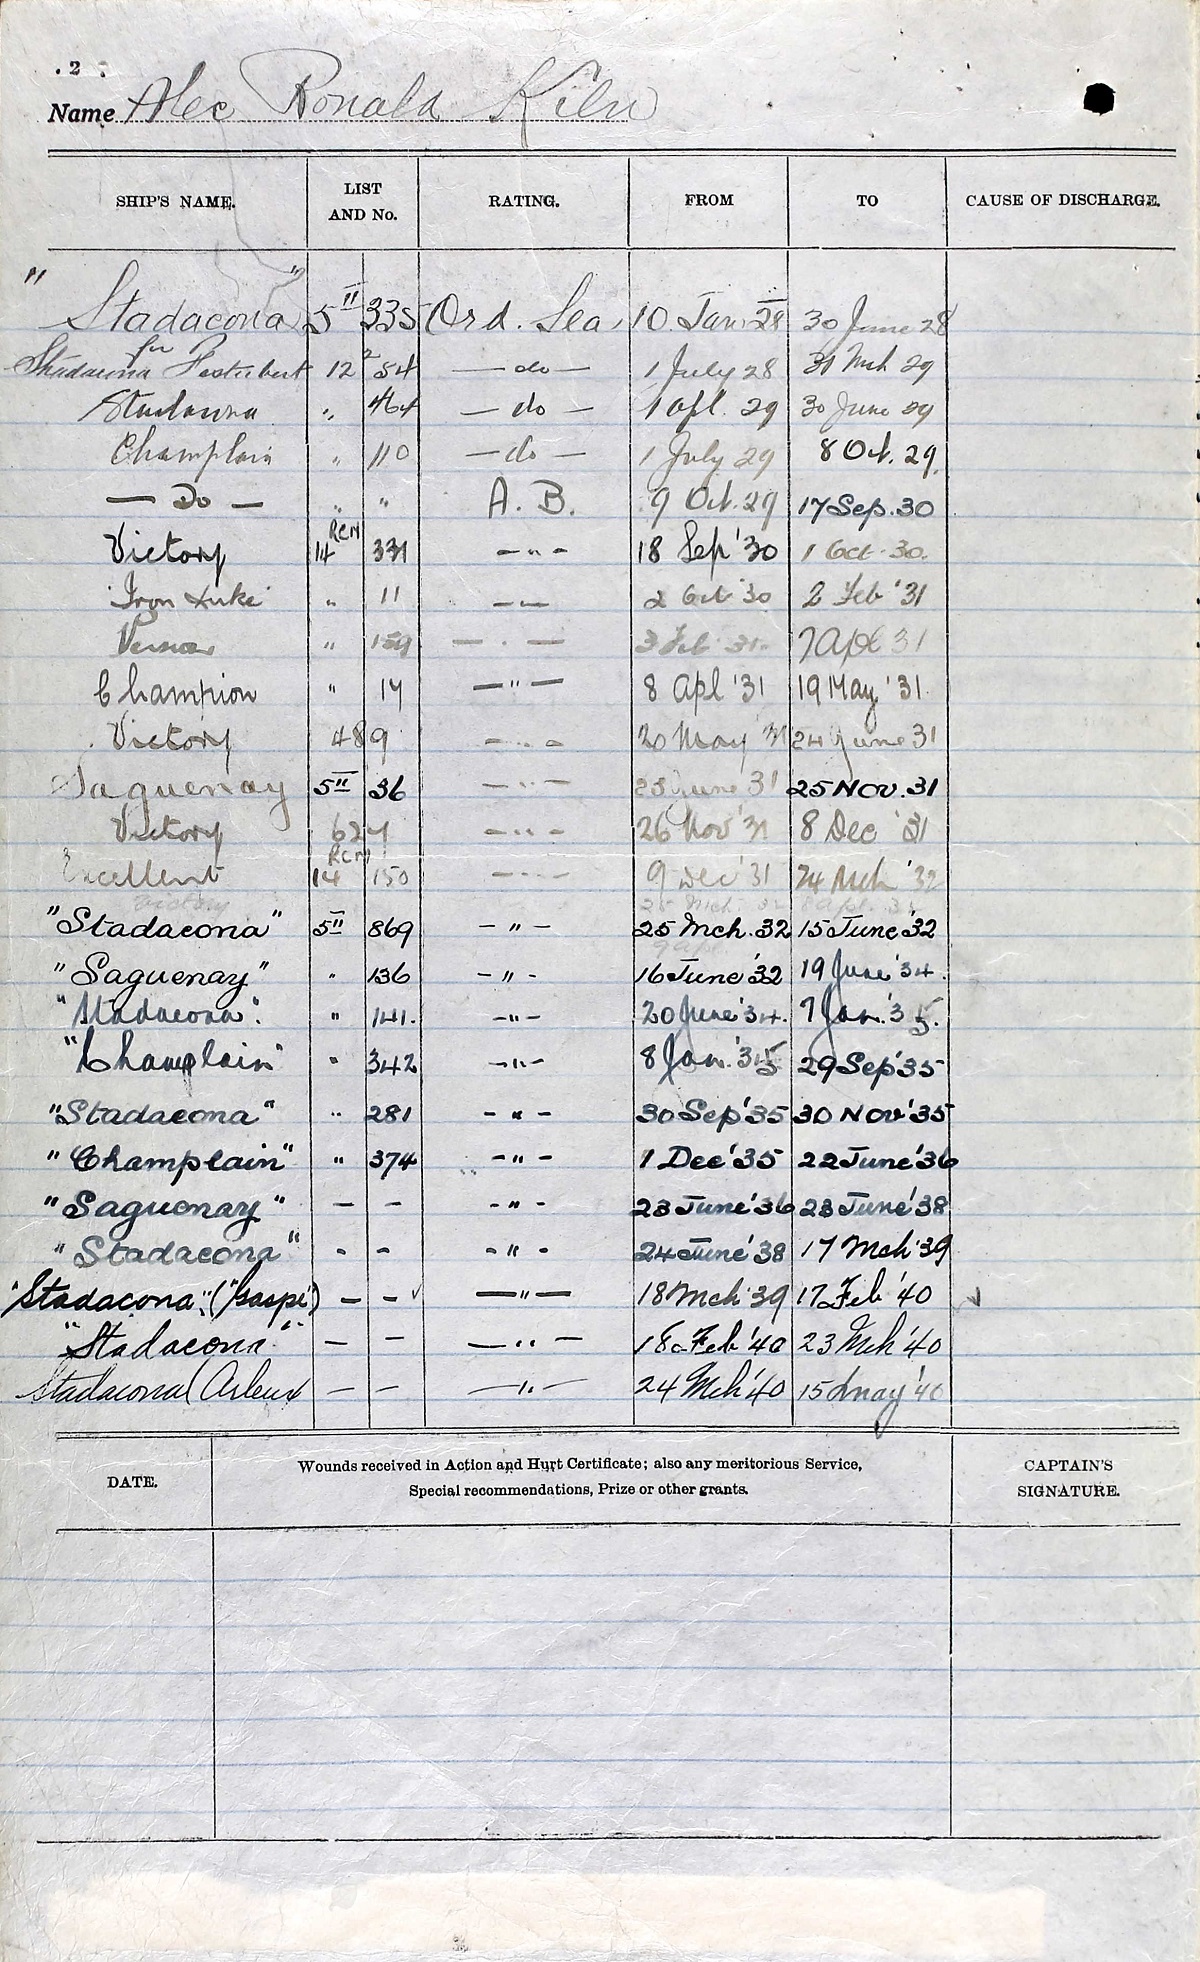 . 2 .
Name Alec Ronald Kiln
SHIP'S NAME. LIST AND No. RATING. FROM TO CAUSE OF DISCHARGE.
"Stadacona" 5II 335 Ord. Sea. 10 Jan 28 30 June 28
Stadacona for Festubert 12² 54 — do — 1 July 28 31 Mch 29
Stadacona " 464 — do — 1 Apl. 29 30 June 29
Champlain " 110 — do — 1 July 29 8 Oct. 29
— Do — " " A. B. 9 Oct. 29 17 Sep. 30
Victory RCN 14 331 — " — 18 Sep '30 1 Oct. 30.
Iron Duke " 11 — " — 2 Oct '30 2 Feb '31
Vernon " 159 — " — 3 Feb 31. 7 Apl 31
Champion " 14 — " — 8 Apl '31 19 May '31
Victory 489 — " — 20 May '31 24 June 31
Saguenay 5II 36 — " — 25 June '31 25 Nov. 31
Victory 624 — " — 26 Nov '31 8 Dec '31
Excellent RCN 14 150 — " — 9 Dec '31 24 Mch '32
Victory 25 Mch 32 8 Apl. 32
"Stadacona" 5II 869 — " — 25 Mch. 32 15 June '32
9 Apl
"Saguenay" " 136 — " — 16 June '32 19 June '34.
"Stadacona". " 141. — " — 20 June '34. 7 Jan. '35.
"Champlain" " 342 — " — 8 Jan. '35 29 Sep '35
"Stadacona" " 281 — " — 30 Sep '35 30 Nov '35
"Champlain" " 374 — " — 1 Dec '35 22 June '36
"Saguenay" — — — " — 23 June '36 23 June '38
"Stadacona" - - — " — 24 June '38 17 Mch '39
"Stadacona". ("Gaspe") — — — " — 18 Mch 39 17 Feb '40
"Stadacona" — — — " — 18 Feb '40 23 Mch '40
Stadacona (Arleux — — — " — 24 Mch '40 15 May '40
DATE. Wounds received in Action and Hurt Certificate; also any meritorious Service, Special recommendations, Prize or other grants. CAPTAIN'S SIGNATURE.